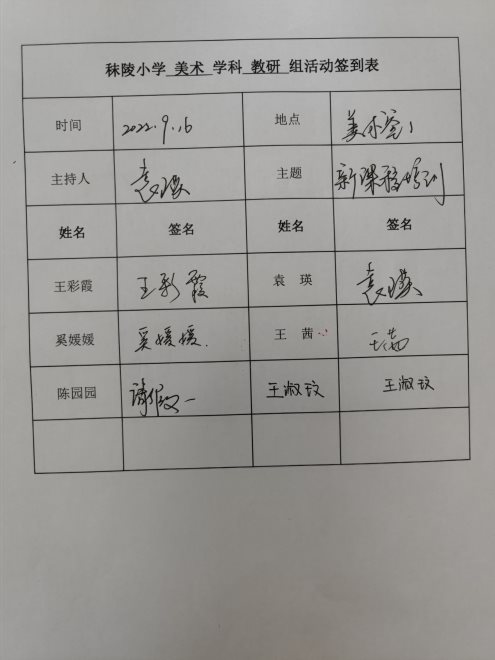 秣陵小学 美术 学科 教研 组活动签到表
时间 2022.9.16 地点 美术室1
主持人 袁瑛 主题 新课程培训
姓名 签名 姓名 签名
王彩霞 王彩霞 袁 瑛 袁瑛
奚媛媛 奚媛媛. 王 茜 王茜
陈园园 请假 王淑玟 王淑玟